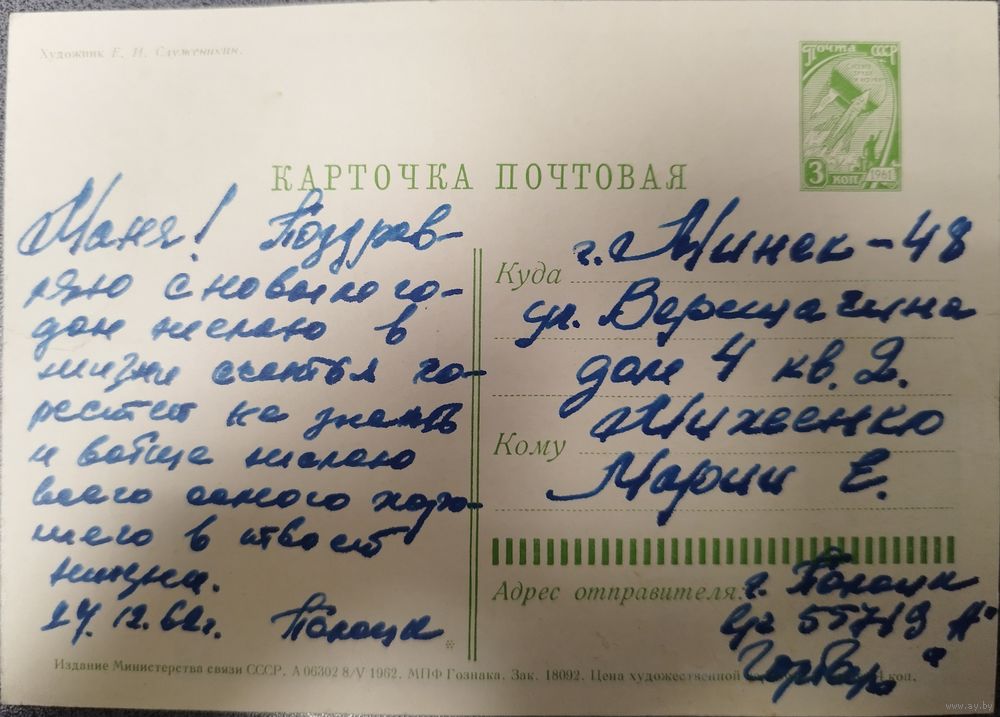 Художник Е. Н. Служенихин.
ПОЧТА СССР
3 КОП
1961
КАРТОЧКА ПОЧТОВАЯ
Маня! Поздрав-
ляю с новым го-
дом желаю в
жизни счастья го-
рестет не знать
и вобще желаю
всего самого хоро-
шего в твоет
жизни.
24.12.62г. Полоцк
Куда г. Минск-48
ул. Верещагина
дом 4 кв. 2.
Кому Михеенко
Марии Е.
Адрес отправителя: г. Полоцк
55719 "А"
Издание Министерства связи СССР. А 06302 8/V 1962. МПФ Гознака. Зак. 18092. Цена художественной коп.
www.ay.by